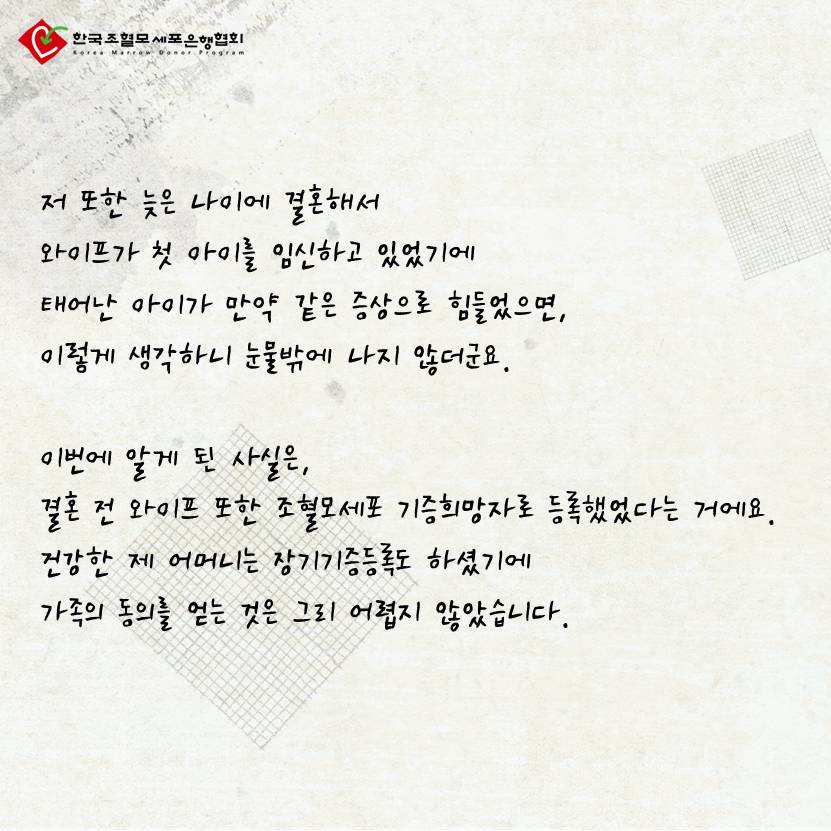 한국조혈모세포은행협회
Korea Marrow Donor Program
저 또한 늦은 나이에 결혼해서
와이프가 첫 아이를 임신하고 있었기에
태어난 아이가 만약 같은 증상으로 힘들었으면,
이렇게 생각하니 눈물밖에 나지 않더군요.
이번에 알게 된 사실은,
결혼 전 와이프 또한 조혈모세포 기증희망자로 등록했었다는 거에요.
건강한 제 어머니는 장기기증등록도 하셨기에
가족의 동의를 얻는 것은 그리 어렵지 않았습니다.